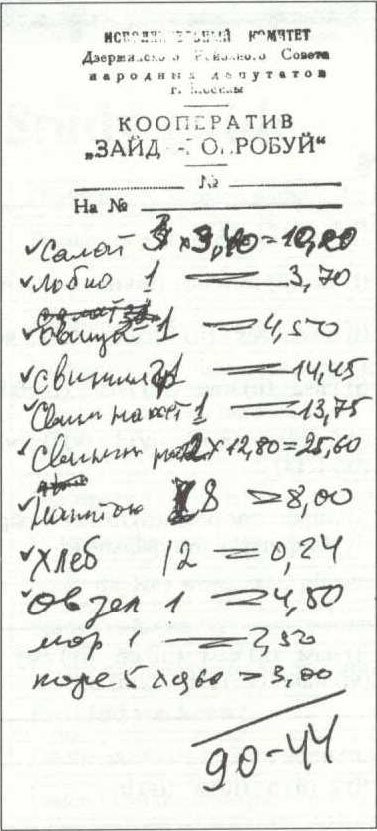 ИСПОЛНИТЕЛЬНЫЙ КОМИТЕТ
Дзержинского Районного Совета
народных депутатов
г. Москвы
КООПЕРАТИВ
„ЗАЙДИ-ПОПРОБУЙ“
№
На №
✓ салат 3 x 3,40=10,20
✓ лобио 1 = 3,70
✓ 1 = 4,50
✓ свинина 1 = 14,45
✓ Свин на кост 1 = 13,75
✓ Свинина на 2 x 12,80=25,60
✓ напиток 8 = 8,00
✓ хлеб 12 = 0,24
✓ ов зел 1 = 4,50
мор 1 = 2,50
кофе 5 x 0,60 = 3,00
90-44